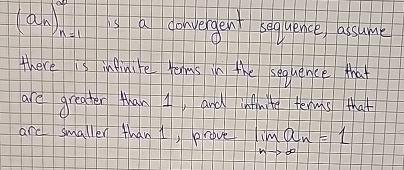 (an)∞n=1 is a convergent sequence, assume
there is infinite terms in the sequence that
are greater than 1, and infinite terms that
are smaller than 1, prove lim n→∞ an = 1